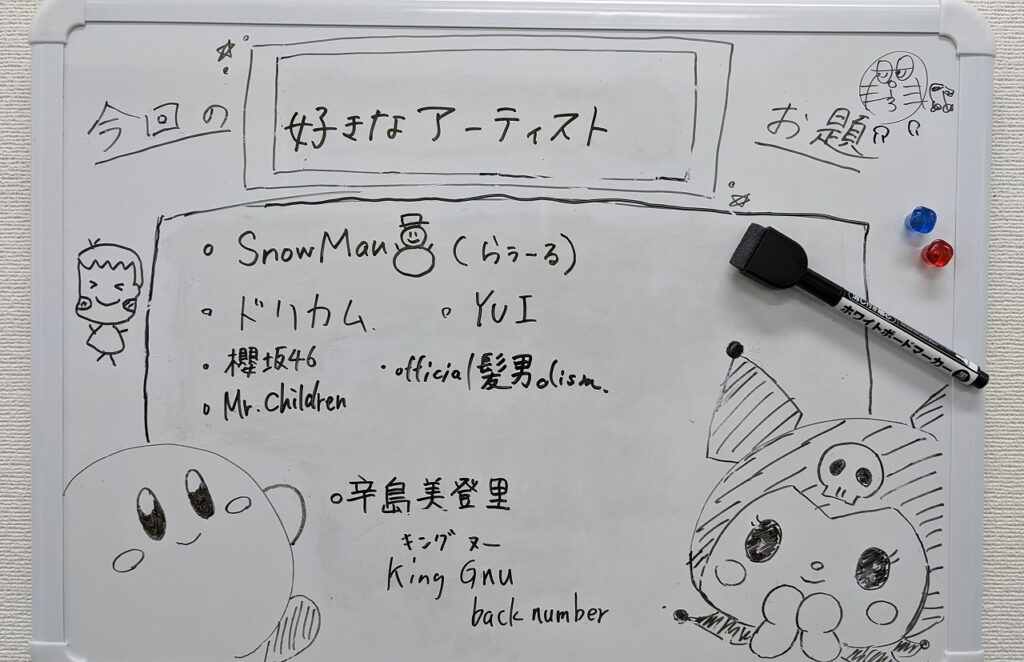 今回の 好きなアーティスト お題
・SnowMan (らぅーる)
・ドリカム ・YUI
・櫻坂46 ・official髭男dism.
・Mr.Children
・辛島美登里
キングヌー
King Gnu
back number
ホワイトボードマーカー